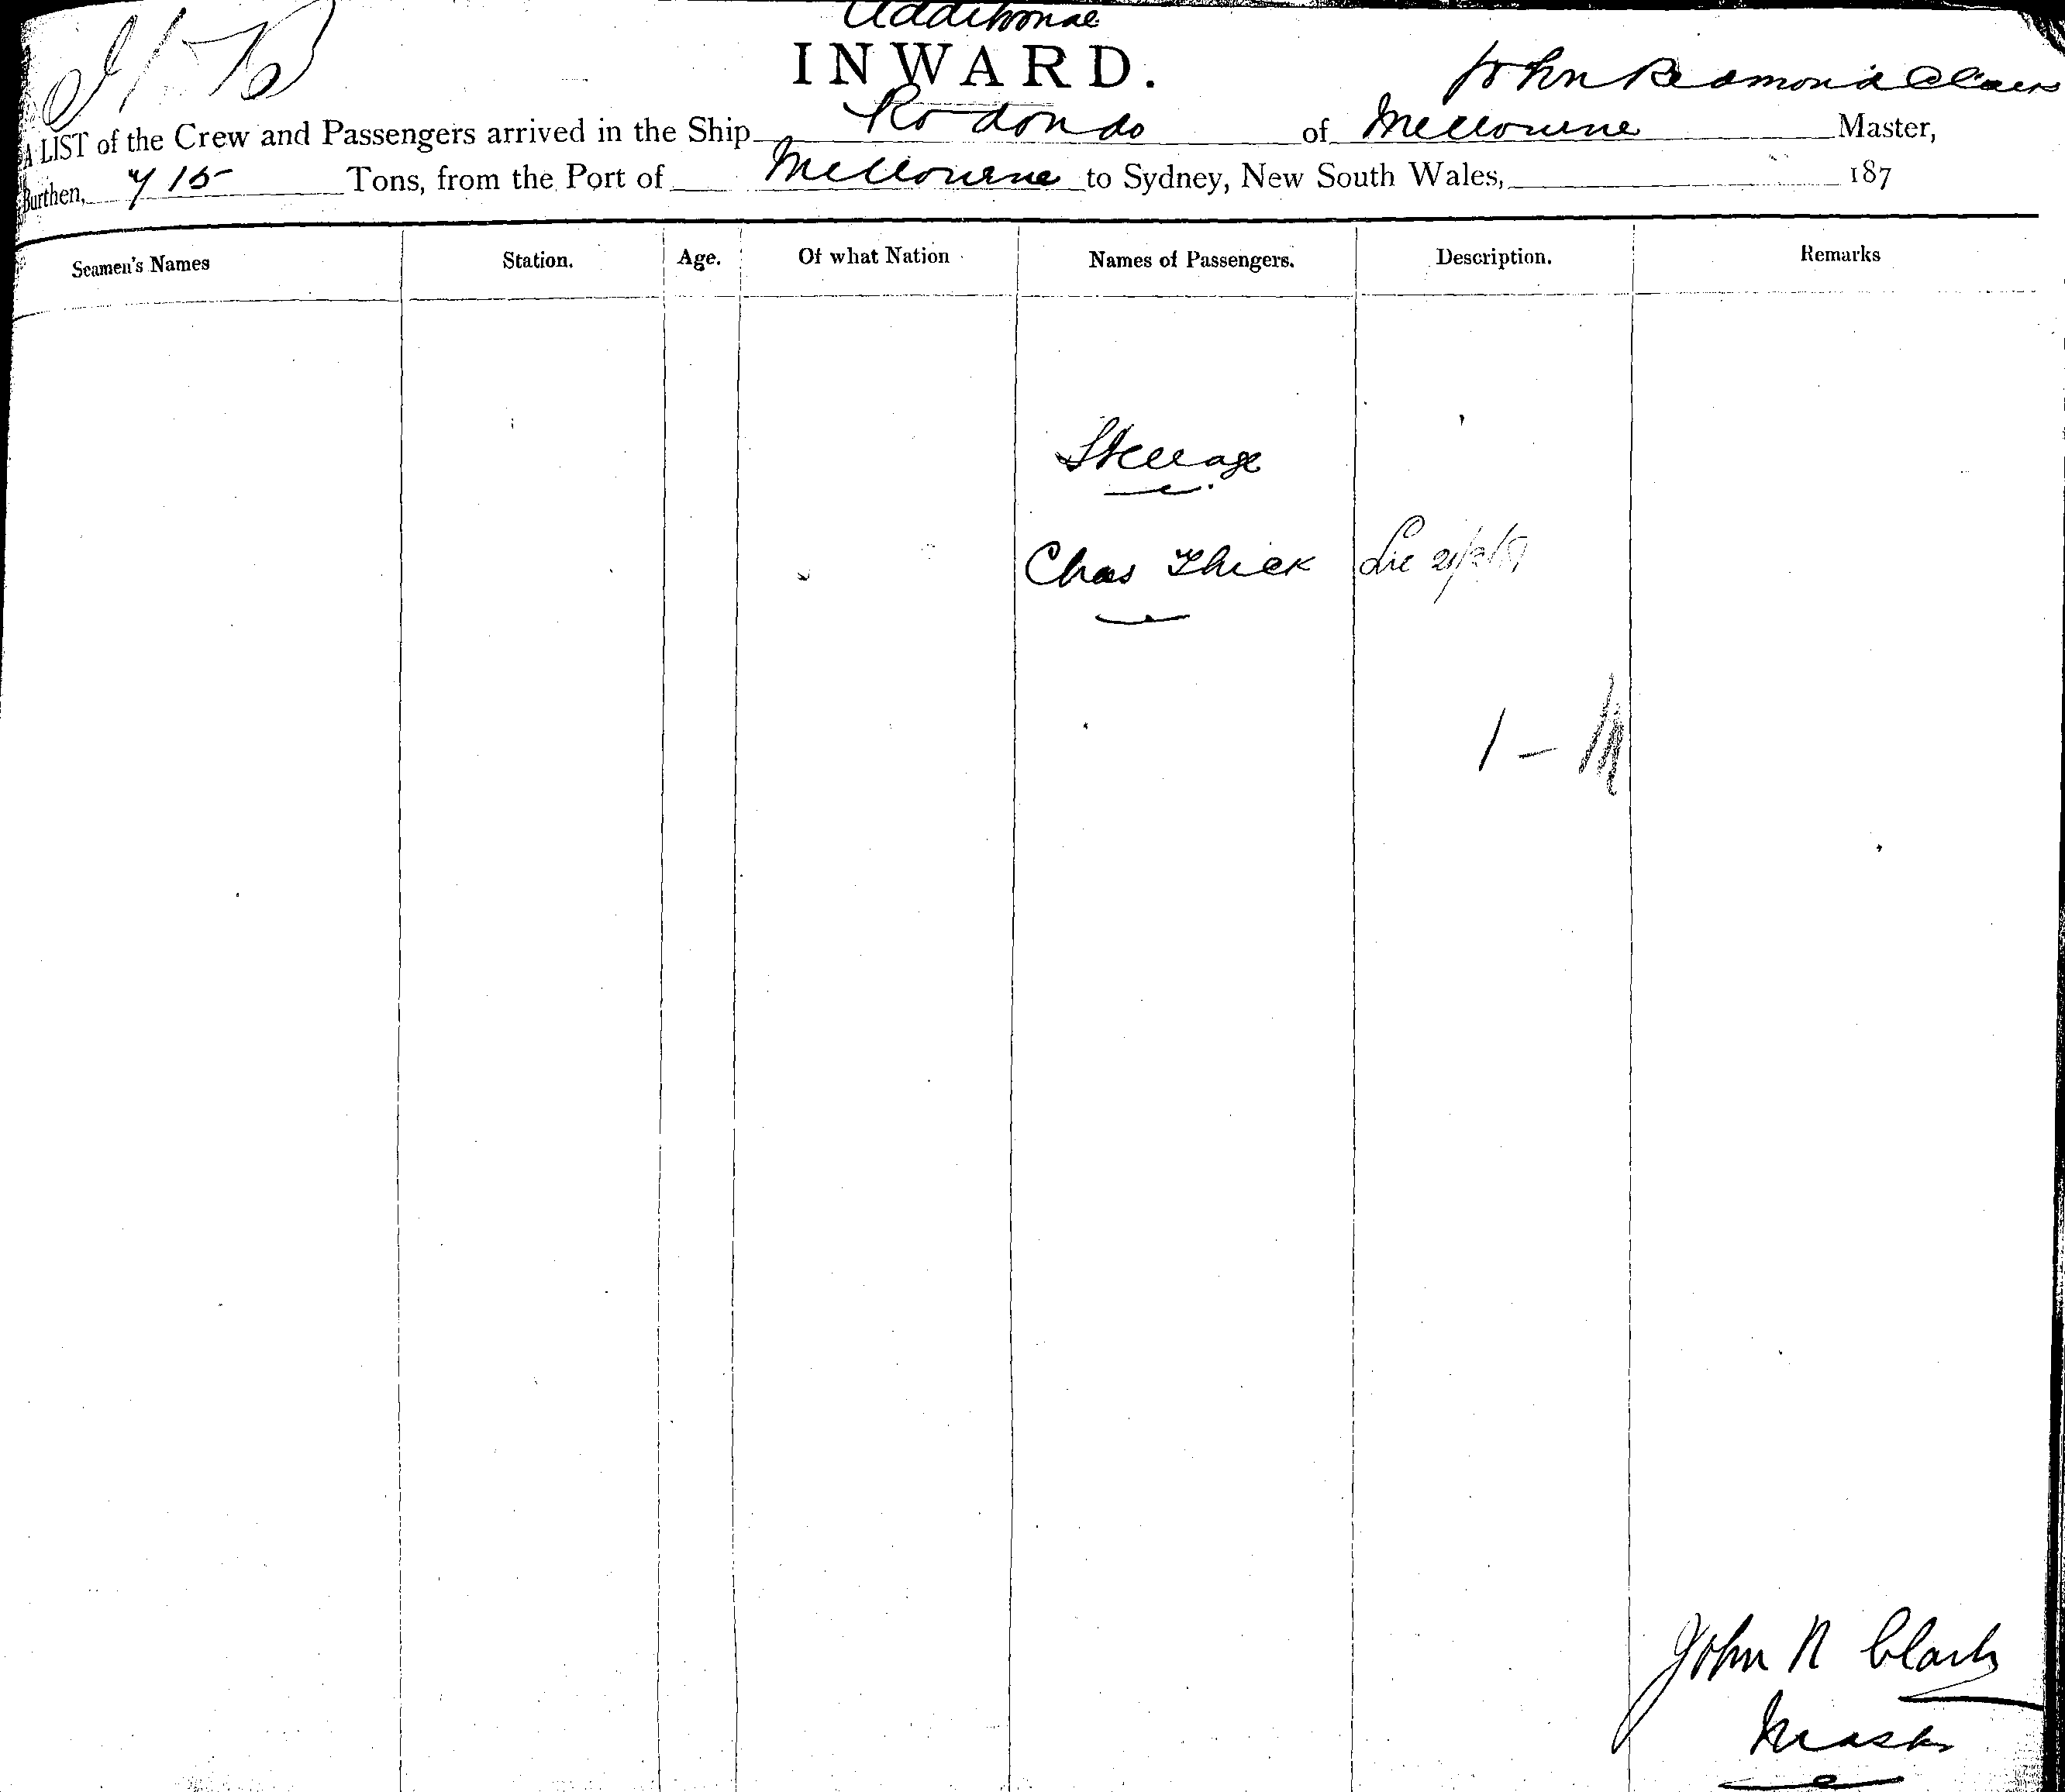 Additional
INWARD.
John Redmond Clark
A LIST of the Crew and Passengers arrived in the Ship Rodondo of Melbourne Master,
Burthen, 715 Tons, from the Port of Melbourne to Sydney, New South Wales, 187
Seamen's Names Station. Age. Of what Nation Names of Passengers. Description. Remarks
Steerage
Chas Thick
1 - M
John R Clark
Master